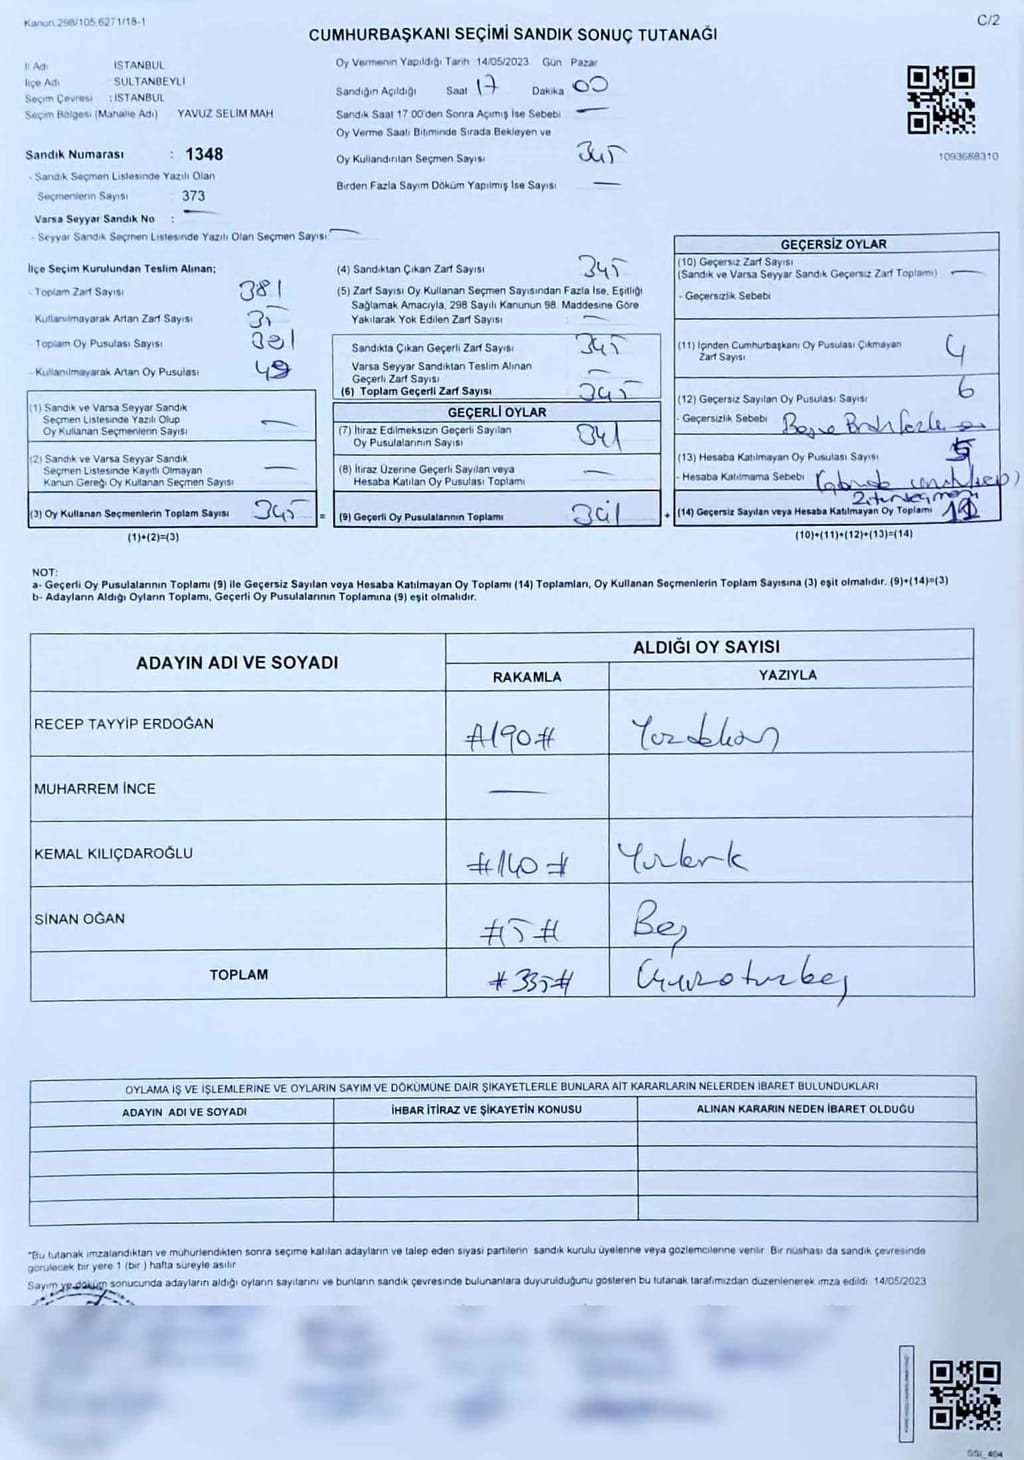 Kanun 298/105.6271/18-1
C/2
CUMHURBAŞKANI SEÇİMİ SANDIK SONUÇ TUTANAĞI
İl Adı İSTANBUL
İlçe Adı SULTANBEYLİ
Seçim Çevresi : İSTANBUL
Seçim Bölgesi (Mahalle Adı) YAVUZ SELİM MAH
Sandık Numarası : 1348
- Sandık Seçmen Listesinde Yazılı Olan
Seçmenlerin Sayısı 373
Varsa Seyyar Sandık No :
- Seyyar Sandık Seçmen Listesinde Yazılı Olan Seçmen Sayısı
Oy Vermenin Yapıldığı Tarih 14/05/2023 Gün Pazar
Sandığın Açıldığı Saat 17 Dakika 00
Sandık Saat 17 00'den Sonra Açımış İse Sebebi
Oy Verme Saati Bitiminde Sırada Bekleyen ve
Oy Kullandırılan Seçmen Sayısı 345
Birden Fazla Sayım Döküm Yapılmış İse Sayısı
1093688310
İlçe Seçim Kurulundan Teslim Alınan;
- Toplam Zarf Sayısı 381
- Kullanılmayarak Artan Zarf Sayısı 35
- Toplam Oy Pusulası Sayısı
- Kullanılmayarak Artan Oy Pusulası
(1) Sandık ve Varsa Seyyar Sandık
Seçmen Listesinde Yazılı Olup
Oy Kullanan Seçmenlerin Sayısı
(2) Sandık ve Varsa Seyyar Sandık
Seçmen Listesinde Kayıtlı Olmayan
Kanun Gereği Oy Kullanan Seçmen Sayısı
(3) Oy Kullanan Seçmenlerin Toplam Sayısı 345 =
(1)+(2)=(3)
(4) Sandıktan Çıkan Zarf Sayısı 345
(5) Zarf Sayısı Oy Kullanan Seçmen Sayısından Fazla İse, Eşitliği
Sağlamak Amacıyla, 298 Sayılı Kanunun 98. Maddesine Göre
Yakılarak Yok Edilen Zarf Sayısı
Sandıkta Çıkan Geçerli Zarf Sayısı 345
Varsa Seyyar Sandıktan Teslim Alınan
Geçerli Zarf Sayısı
(6) Toplam Geçerli Zarf Sayısı 345
GEÇERLİ OYLAR
(7) İtiraz Edilmeksizin Geçerli Sayılan
Oy Pusulalarının Sayısı 341
(8) İtiraz Üzerine Geçerli Sayılan veya
Hesaba Katılan Oy Pusulası Toplamı
(9) Geçerli Oy Pusulalarının Toplamı 341 +
GEÇERSİZ OYLAR
(10) Geçersiz Zarf Sayısı
(Sandık ve Varsa Seyyar Sandık Geçersiz Zarf Toplamı)
- Geçersizlik Sebebi
(11) İçinden Cumhurbaşkanı Oy Pusulası Çıkmayan
Zarf Sayısı 4
(12) Geçersiz Sayılan Oy Pusulası Sayısı 6
- Geçersizlik Sebebi
(13) Hesaba Katılmayan Oy Pusulası Sayısı
- Hesaba Katılmama Sebebi
(14) Geçersiz Sayılan veya Hesaba Katılmayan Oy Toplamı
(10)+(11)+(12)+(13)=(14)
NOT:
a- Geçerli Oy Pusulalarının Toplamı (9) ile Geçersiz Sayılan veya Hesaba Katılmayan Oy Toplamı (14) Toplamları, Oy Kullanan Seçmenlerin Toplam Sayısına (3) eşit olmalıdır. (9)+(14)=(3)
b- Adayların Aldığı Oyların Toplamı, Geçerli Oy Pusulalarının Toplamına (9) eşit olmalıdır.
ADAYIN ADI VE SOYADI
ALDIĞI OY SAYISI
RAKAMLA YAZIYLA
RECEP TAYYİP ERDOĞAN #190# Yüzdoksan
MUHARREM İNCE
KEMAL KILIÇDAROĞLU #140# Yüzkırk
SİNAN OĞAN #5# Beş
TOPLAM #335# Üçyüzotuzbeş
OYLAMA İŞ VE İŞLEMLERİNE VE OYLARIN SAYIM VE DÖKÜMÜNE DAİR ŞİKAYETLERLE BUNLARA AİT KARARLARIN NELERDEN İBARET BULUNDUKLARI
ADAYIN ADI VE SOYADI İHBAR İTİRAZ VE ŞİKAYETİN KONUSU ALINAN KARARIN NEDEN İBARET OLDUĞU
*Bu tutanak imzalandıktan ve mühürlendikten sonra seçime katılan adayların ve talep eden siyasi partilerin sandık kurulu üyelerine veya gözlemcilerine verilir. Bir nüshası da sandık çevresinde
görülecek bir yere 1 (bir ) hafta süreyle asılır
Sayım ve döküm sonucunda adayların aldığı oyların sayılarını ve bunların sandık çevresinde bulunanlara duyurulduğunu gösteren bu tutanak tarafımızdan düzenlenerek imza edildi 14/05/2023